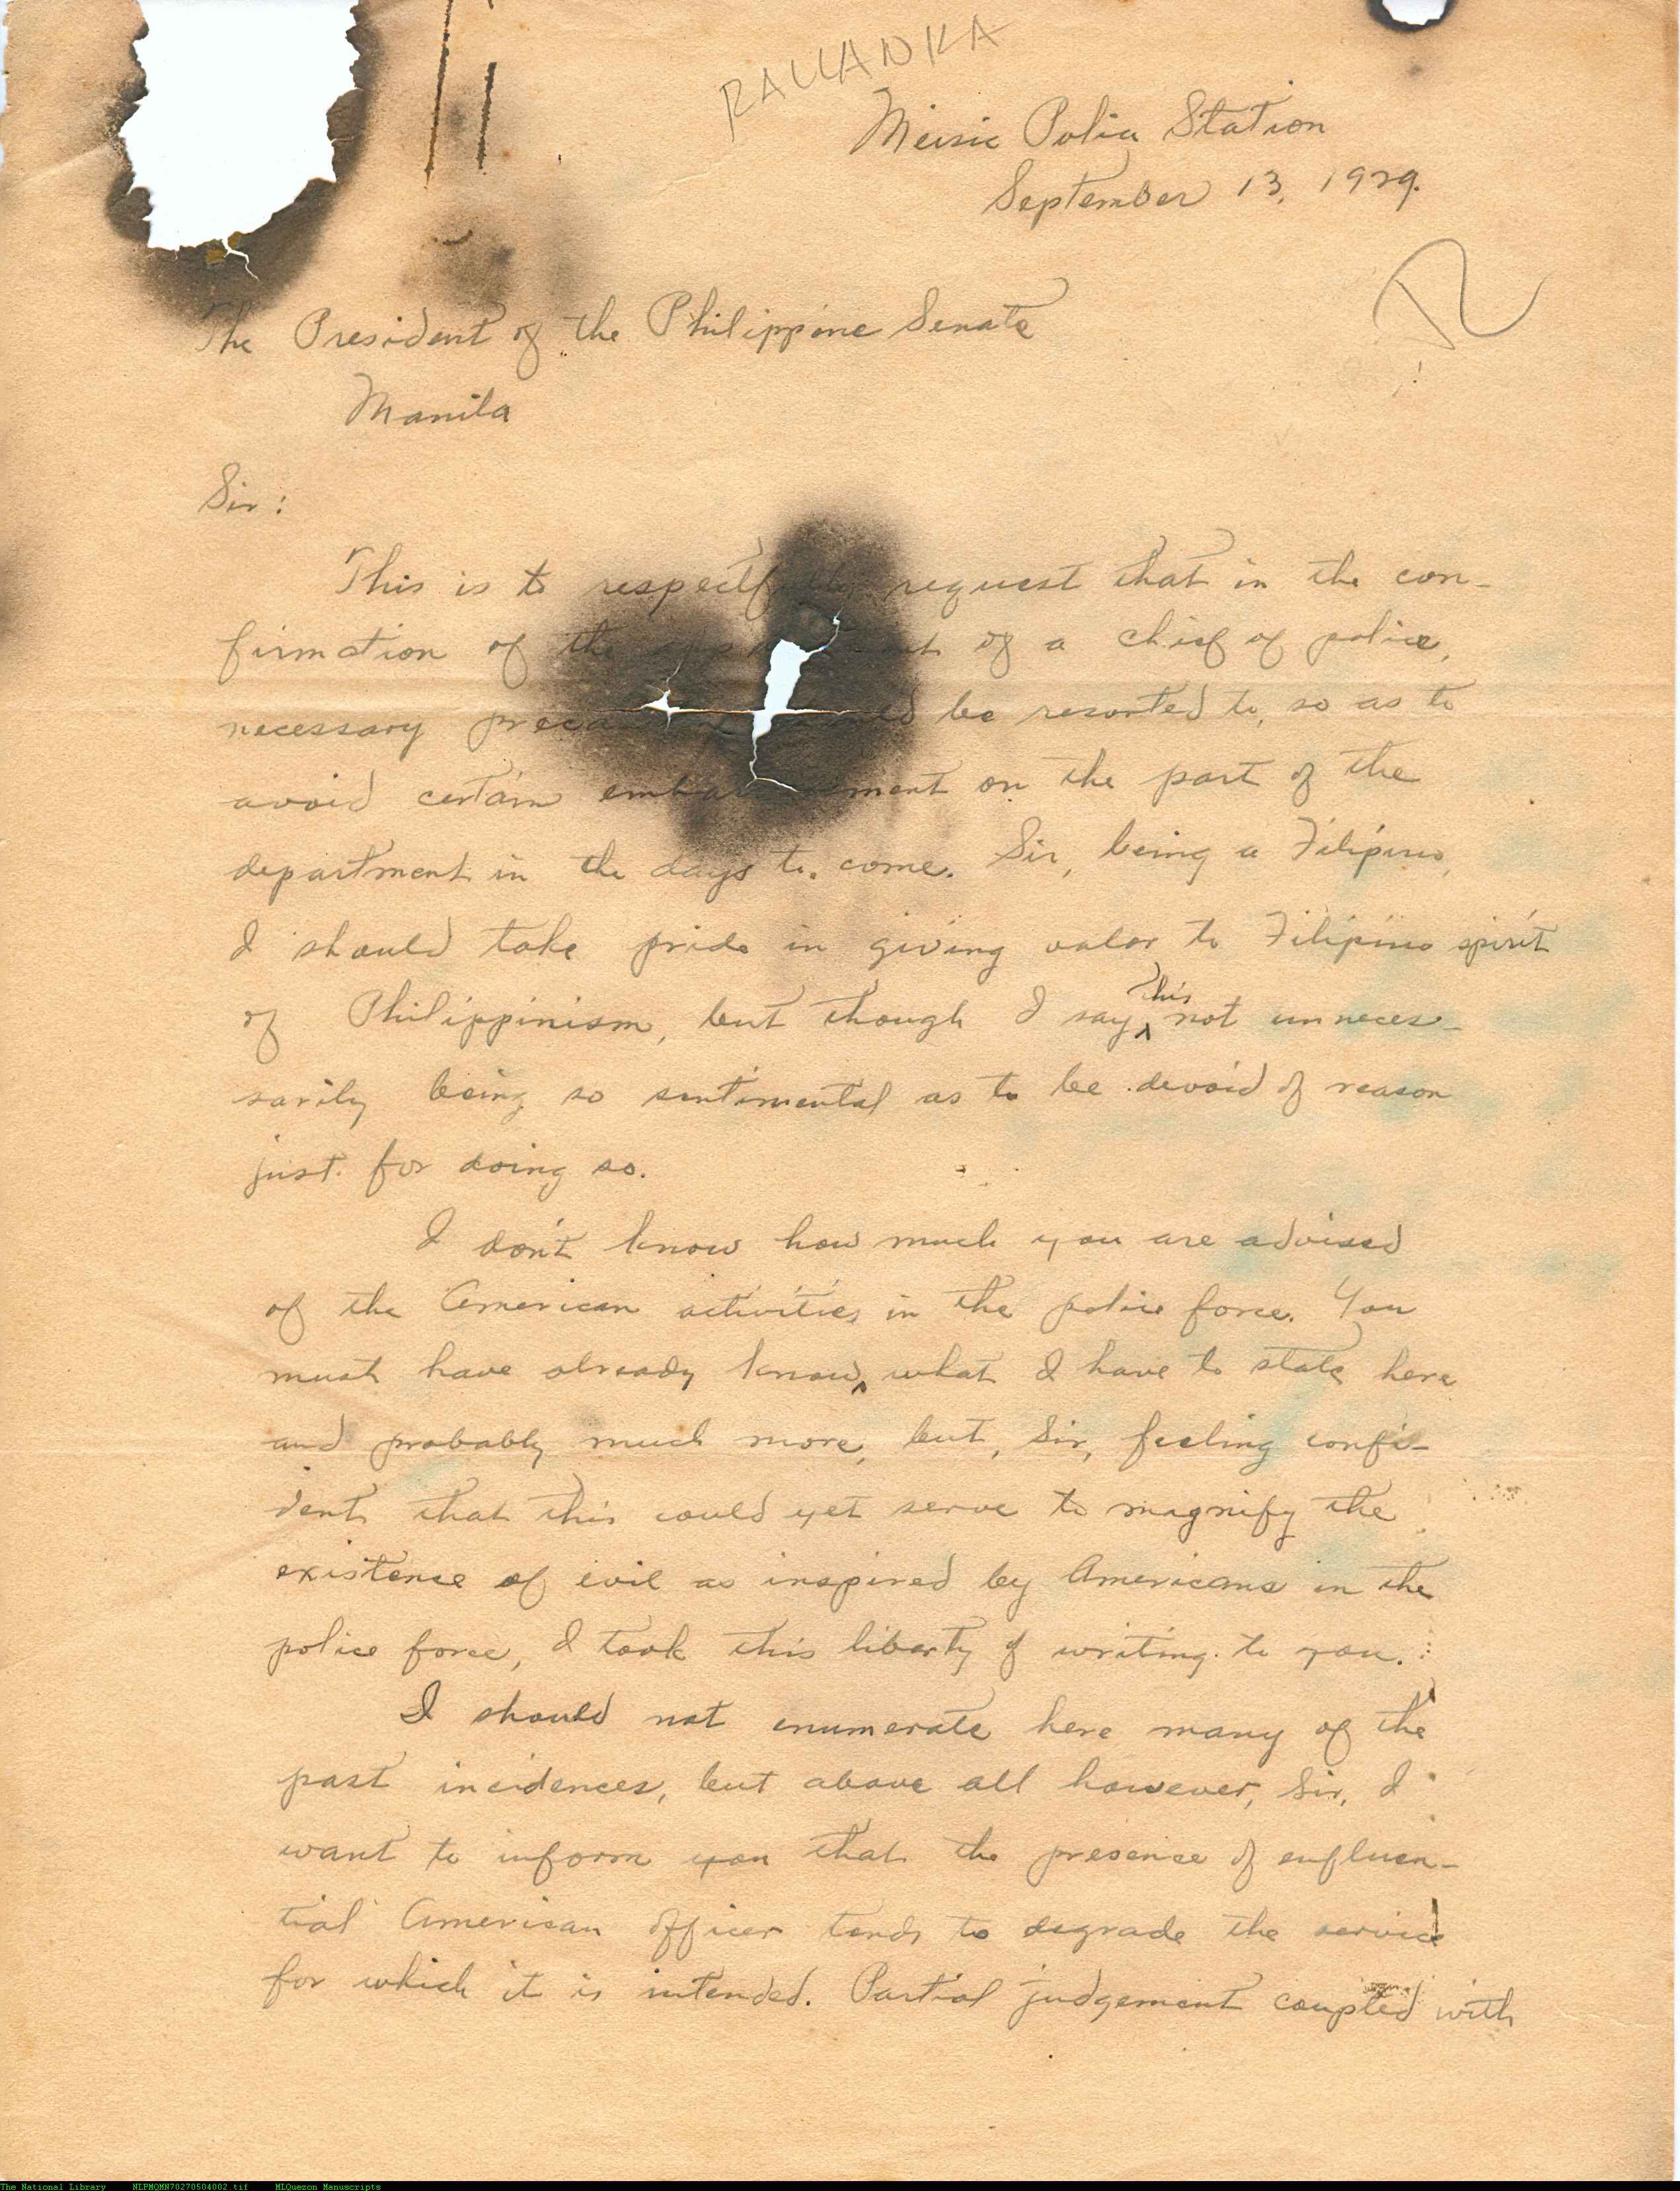 Meisic Police Station
September 13, 1929.
The President of the Philippine Senate
Manila
Sir:
This is to respectfully request that in the con-
firmation of the of a chief of police,
necessary be resorted to, so as to
avoid certain on the part of the
department in the days to come. Sir, being a Filipino,
I should take pride in giving valor to Filipino spirit
of Philippinism, but though I say this not unneces-
sarily being so sentimental as to be devoid of reason
just for doing so.
I don't know how much you are advised
of the American activities in the police force. You
must have already know, what I have to state here
and probably much more, but, Sir, feeling confi-
dent that this could yet serve to magnify the
existence of evil as inspired by Americans in the
police force, I took this liberty of writing to you.
I should not enumerate here many of the
past incidences, but above all however, Sir, I
want to inform you that the presence of enfluen-
tial American officer tends to degrade the service
for which it is intended. Partial judgement coupled with
The National Library NLPMQMN70270504002 tif MLQuezon Manuscripts